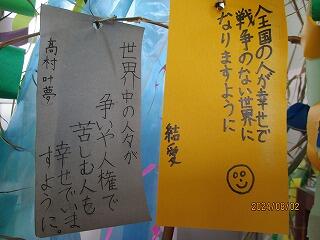 全国の人が幸せで
戦争のない世界に
なりますように
結愛
世界中の人々が
争いや人権で
苦しむ人も
幸せでいま
すように。
高村叶夢
2024/08/02